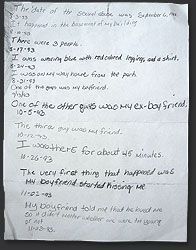 The date of the sexual abuse was September 6,
8-3-93
It happened in the basement of my building
8-10-93
There were 3 people.
8-17-93
I was wearing blue with red colored legging, and a shirt.
8-24-93
I was on my way home from the park.
8-31-93
One of the guys was my boyfriend.
One of the other guys was my ex-boyfriend.
10-5-93
The third guy was my friend.
10-12-93
I was there for about 45 minutes.
10-26-93
The very first thing that happened was
My boyfriend started kissing me
11-02-93
My boyfriend told me that he loved me
so it didn't matter whether we were too young
or not
11-02-93.